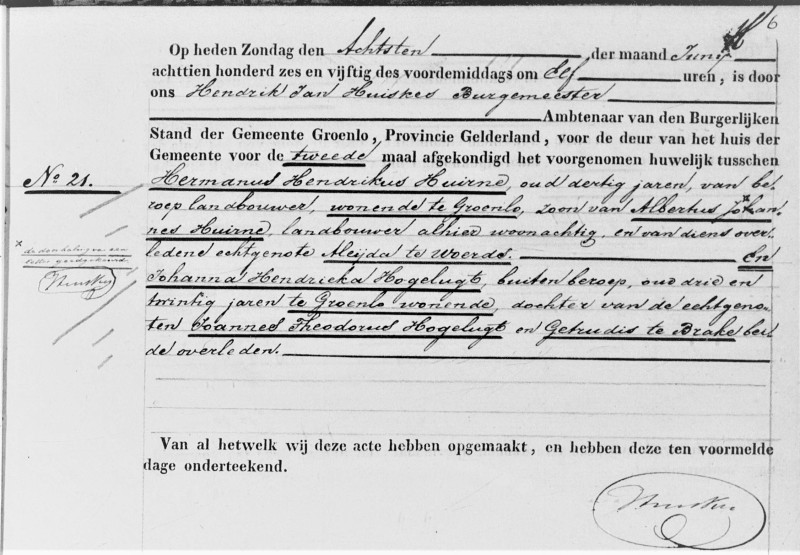 6
Op heden Zondag den Achtsten, der maand Juny
achttien honderd zes en vijftig des voordemiddags om Elf uren, is door
ons Hendrik Jan Huiskes Burgemeester
Ambtenaar van den Burgerlijken
Stand der Gemeente Groenlo, Provincie Gelderland, voor de deur van het huis der
Gemeente voor de tweede maal afgekondigd het voorgenomen huwelijk tusschen
No 21.
Hermanus Hendrikus Huirne, oud dertig jaren, van be-
roep landbouwer, wonende te Groenlo, zoon van Albertus Johan-
nes Huirne, landbouwer alhier woonachtig, en van diens over-
ledene echtgenote Aleijda te Woerds. En
Johanna Hendrieka Hogelugt, buiten beroep, oud drie en
twintig jaren te Groenlo wonende, dochter van de echtgeno-
ten Joannes Theodorus Hogelugt en Getrudis te Brake bei-
de overleden.
x de doorhaling van een
letter goedgekeurd.
Van al hetwelk wij deze acte hebben opgemaakt, en hebben deze ten voormelde
dage onderteekend.